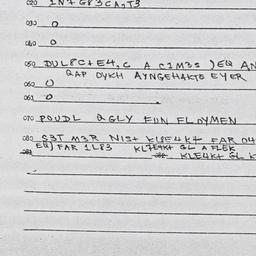 020 1N7G83CA2T3
030 0
040 0
050 DUL8C+E4,C A C1M3S JEQ AN
QAP DYKH AYNGEHAKTO EYER
060 0
061 0
070 POUDL QGLY FUN FLOYMEN
080 S3T M3R NIS+ KL8E4K+ FAR 04
EQ) FAR 1L83 KL7E4K+ GL A FLEK
KLE4K+ GL K